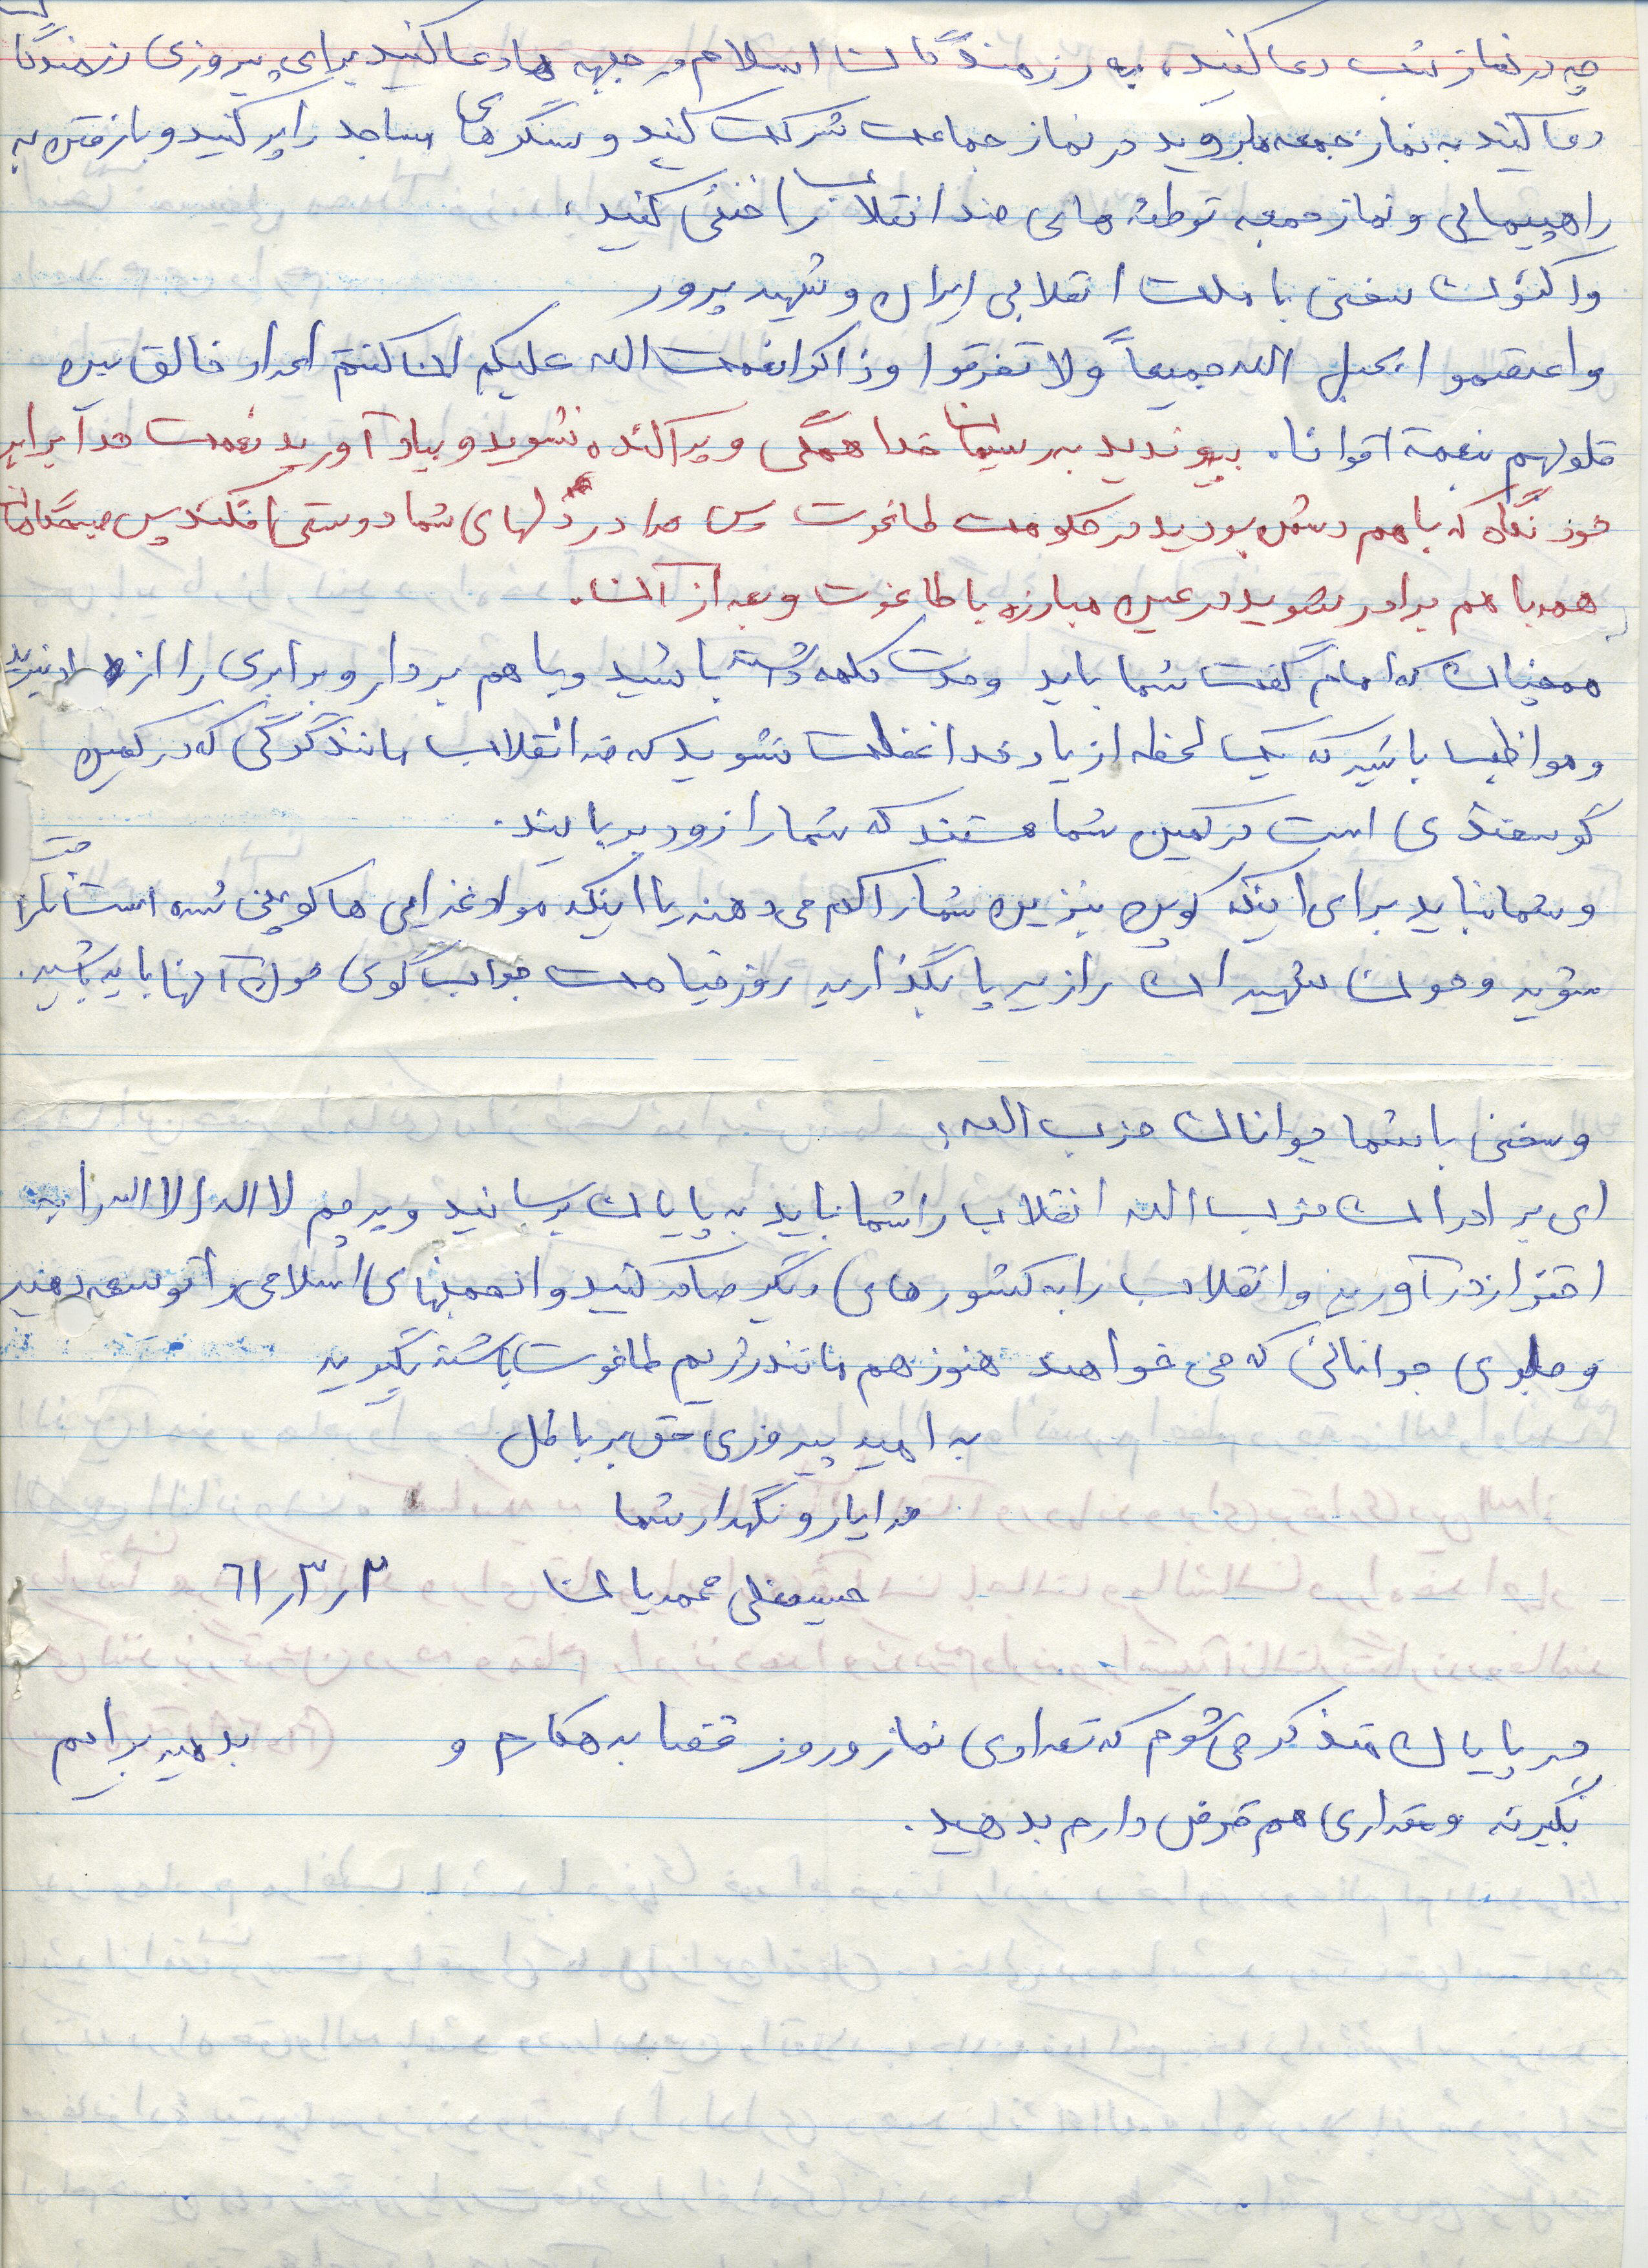 چه در نماز شب دعا کنید، به رزمندگان اسلام در جبهه ها دعا کنید برای پیروزی رزمندگان
دعا کنید به نماز جمعه ها بروید در نماز جماعت شرکت کنید و سنگرهای مساجد را پر کنید و با رفتن به
راهپیمایی و نماز جمعه توطئه های ضد انقلاب را خنثی کنید،
و اکنون سخنی با ملت انقلابی ایران و شهید پرور
واعتصموا بحبل الله جمیعاً ولا تفرقوا وذاکرا نعمت الله علیکم ان کنتم اعداء فالف بین
قلوبهم بنعمة اخوانا. بپیوندید به ریسمان خدا همگی و پراکنده نشوید و بیاد آورید نعمت خدا برابر
خود نگاه که با هم دشمن بودید در حکومت طاغوت پس خدا در دلهای شما دوستی افکند پس صبحگاهان
همه با هم برادر بشوید در عین مبارزه با طاغوت و بعد از آن.
همچنان که امام گفت شما باید وحدت کلمه داشته باشید و با هم بردار و برابری را از یاد نبرید
و مواظب باشید که یک لحظه از یاد خدا غفلت نشوید که ضد انقلاب مانند گرگی که در کمین
گوسفندی است در کمین شما هستند که شما را زود بربایند.
و شما نباید برای اینکه کوپن بنزین شما را کم می دهند یا اینکه مواد غذایی ها کوپنی شده است ناراحت
شوید و خون شهیدان را زیر پا بگذارید روز قیامت جواب گوی خون آنها باید باشید.
و سخنی با شما جوانان حزب الله:
ای برادران حزب الله انقلاب را شما باید به پایان برسانید و پرچم لا اله الا الله را به
اهتزاز در آورید و انقلاب را به کشورهای دیگر صادر کنید و انجمنهای اسلامی را توسعه دهید
و جلوی جوانانی که می خواهند هنوز هم مانند رژیم طاغوت باشند بگیرید
به امید پیروزی حق بر باطل
خدا یار و نگهدار شما
حسینعلی محمدیان ۶۱/۳/۳
در پایان متذکر می شوم که تعدادی نماز و روز قضا بدهکارم و بدهید برایم
بگیرند و مقداری هم قرض دارم بدهید.